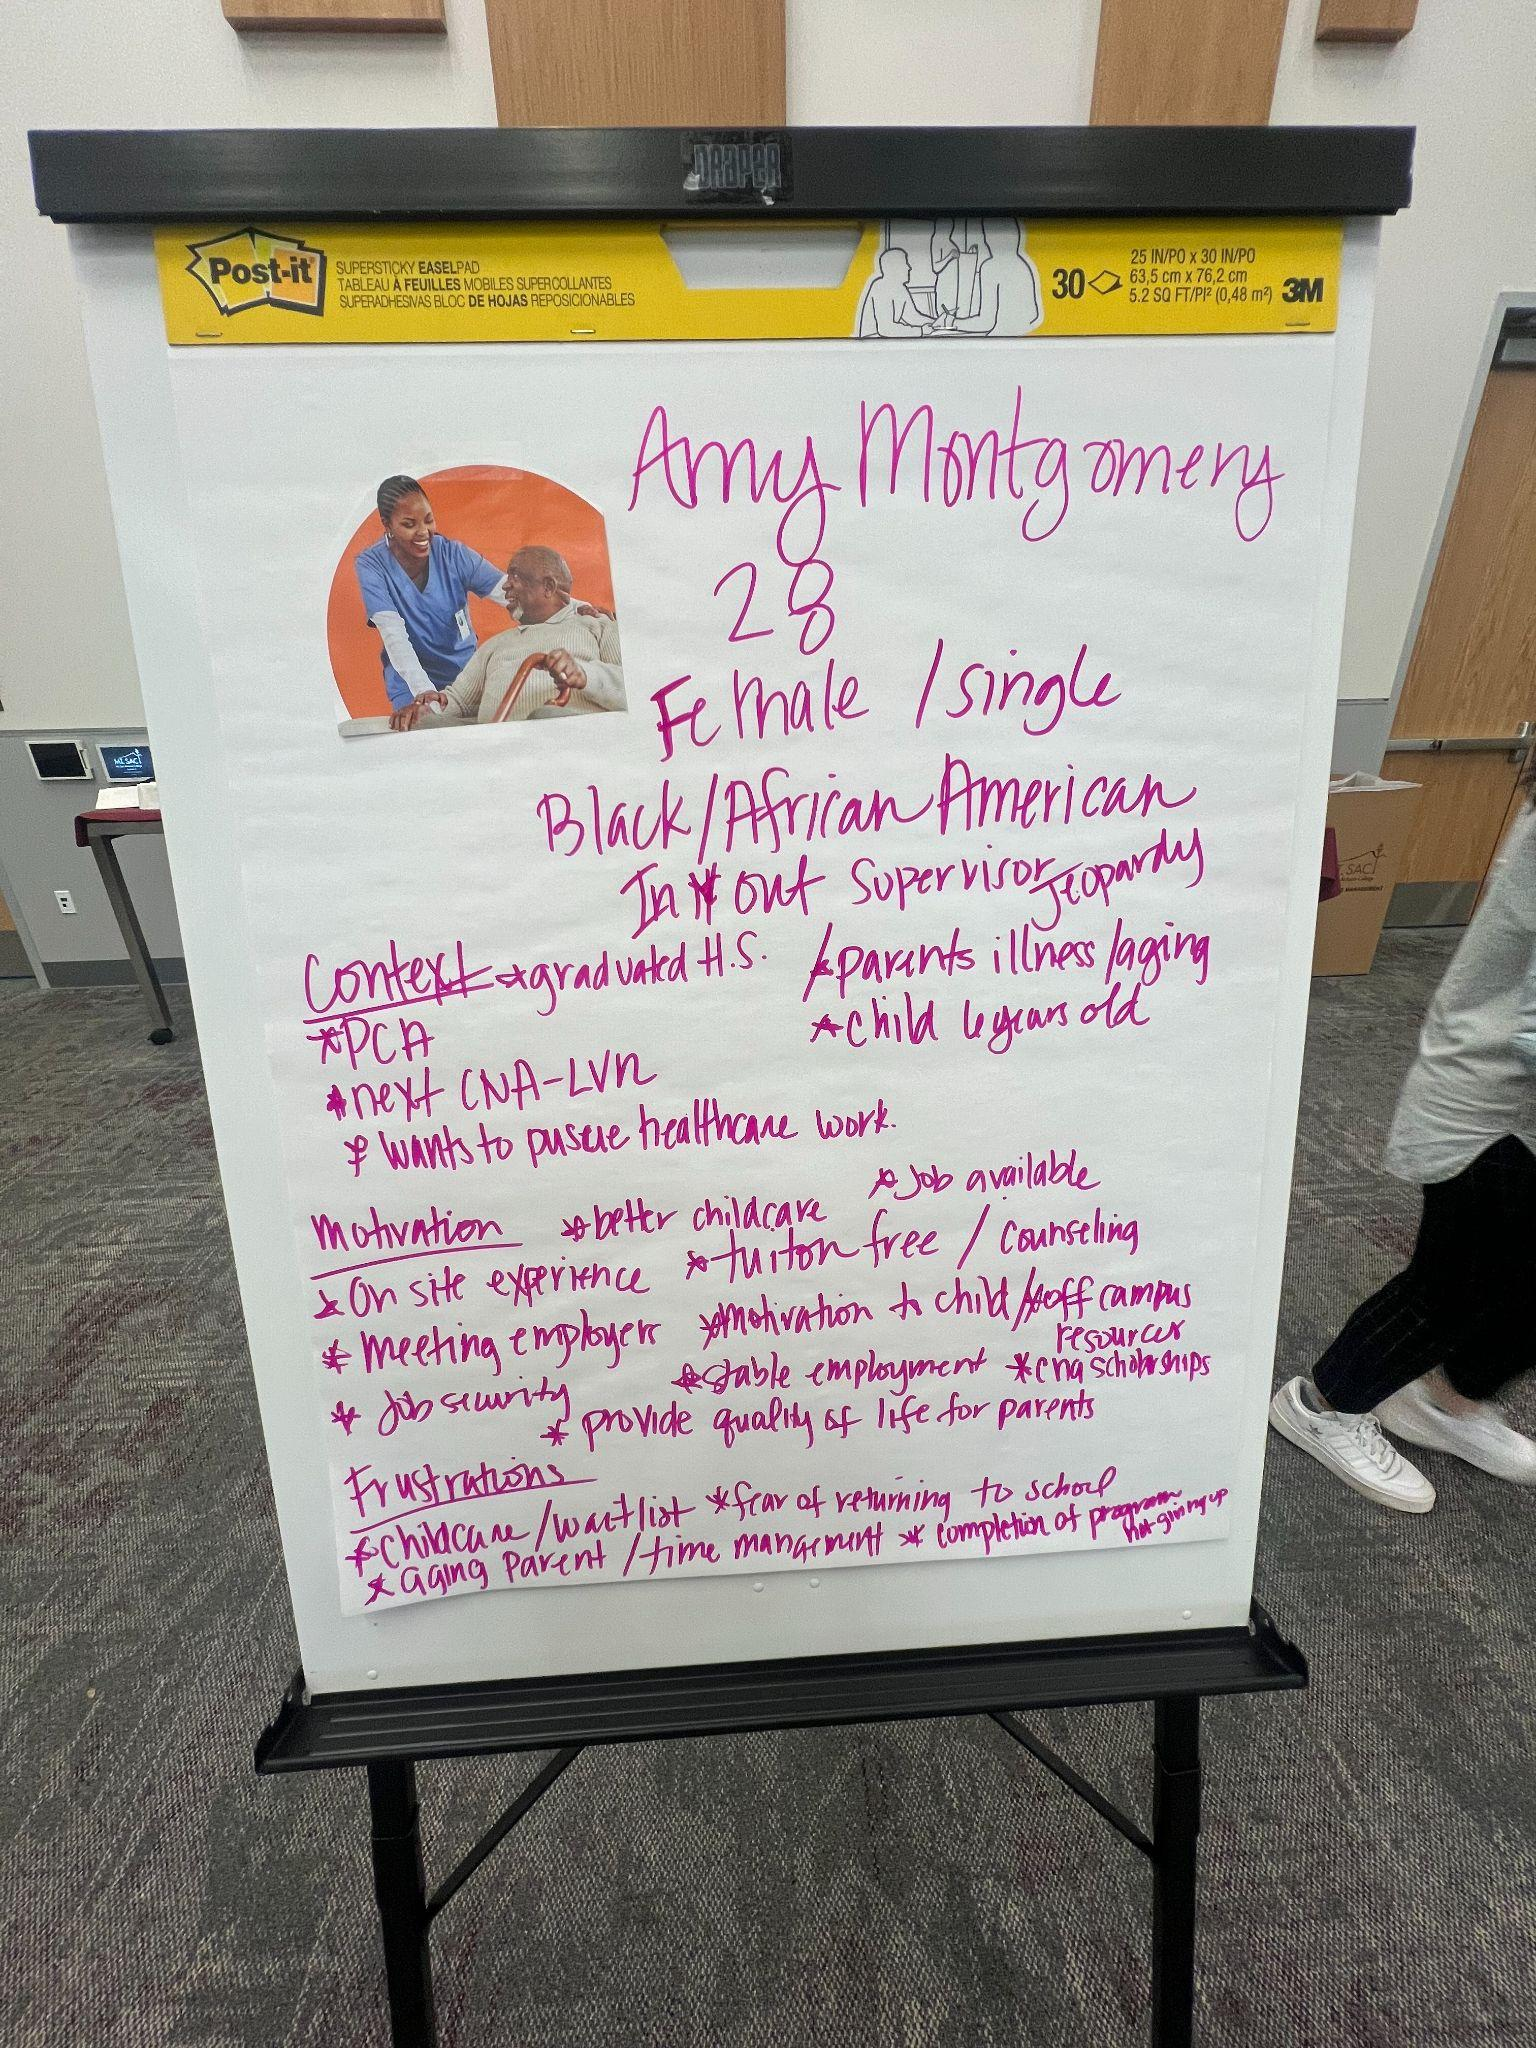 DRAPER
Post-it
SUPERSTICKY EASELPAD
TABLEAU À FEUILLES MOBILES SUPERCOLLANTES
SUPERADHESIVAS BLOC DE HOJAS REPOSICIONABLES
30
25 IN/PO x 30 IN/PO
63,5 cm x 76,2 cm
5.2 SQ FT/PI² (0,48 m²)
3M
Amy Montgomery
28
Female / single
Black/African American
In N out Supervisor Jeopardy
Context *graduated H.S. * parents illness/aging
*PCA * child 6 years old
*next CNA-LVN
* wants to pusue healthcare work.
Motivation * better childcare * Job available
* On site experience * tuiton free / counseling
* Meeting employers * Motivation to child / * off campus resources
* Job security * Stable employment * cna scholarships
* provide quality of life for parents
Frustrations
* childcare / waitlist * fear of returning to school
* aging parent / time management * completion of program not giving up
MT. SAC
SAC